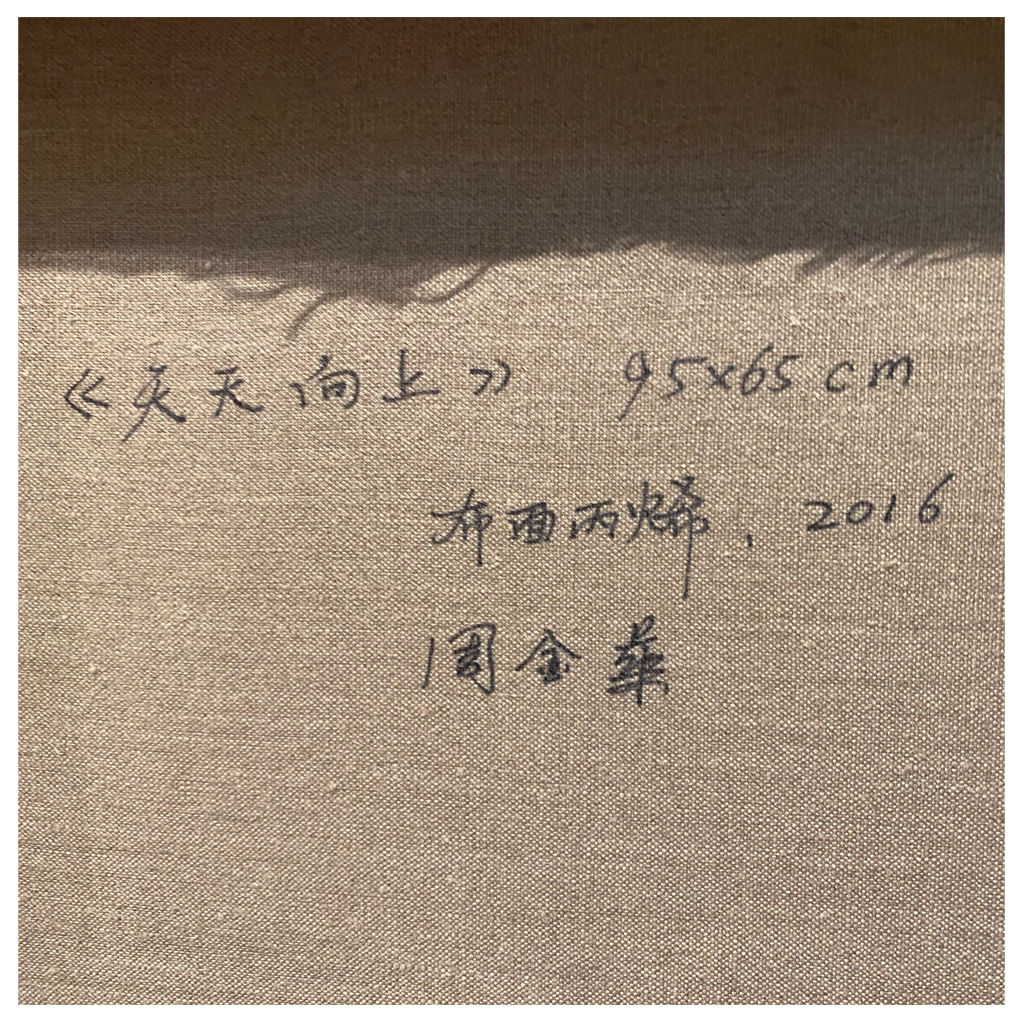 《天天向上》 95x65 cm
布面丙烯, 2016
周金華